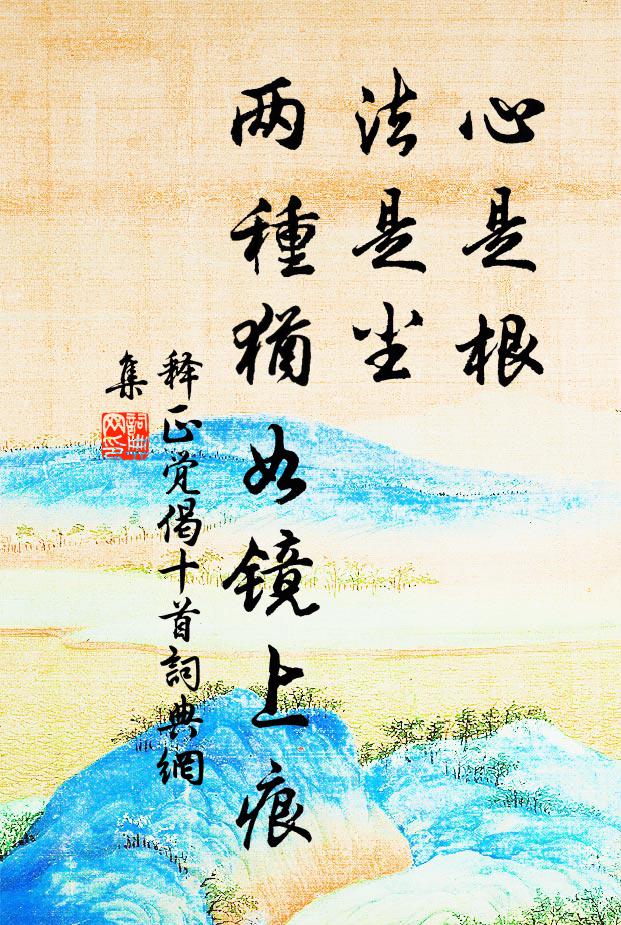 心是根
法是尘
两種猶如镜上痕
释正觉偈十首詞典網
集
詞典网印